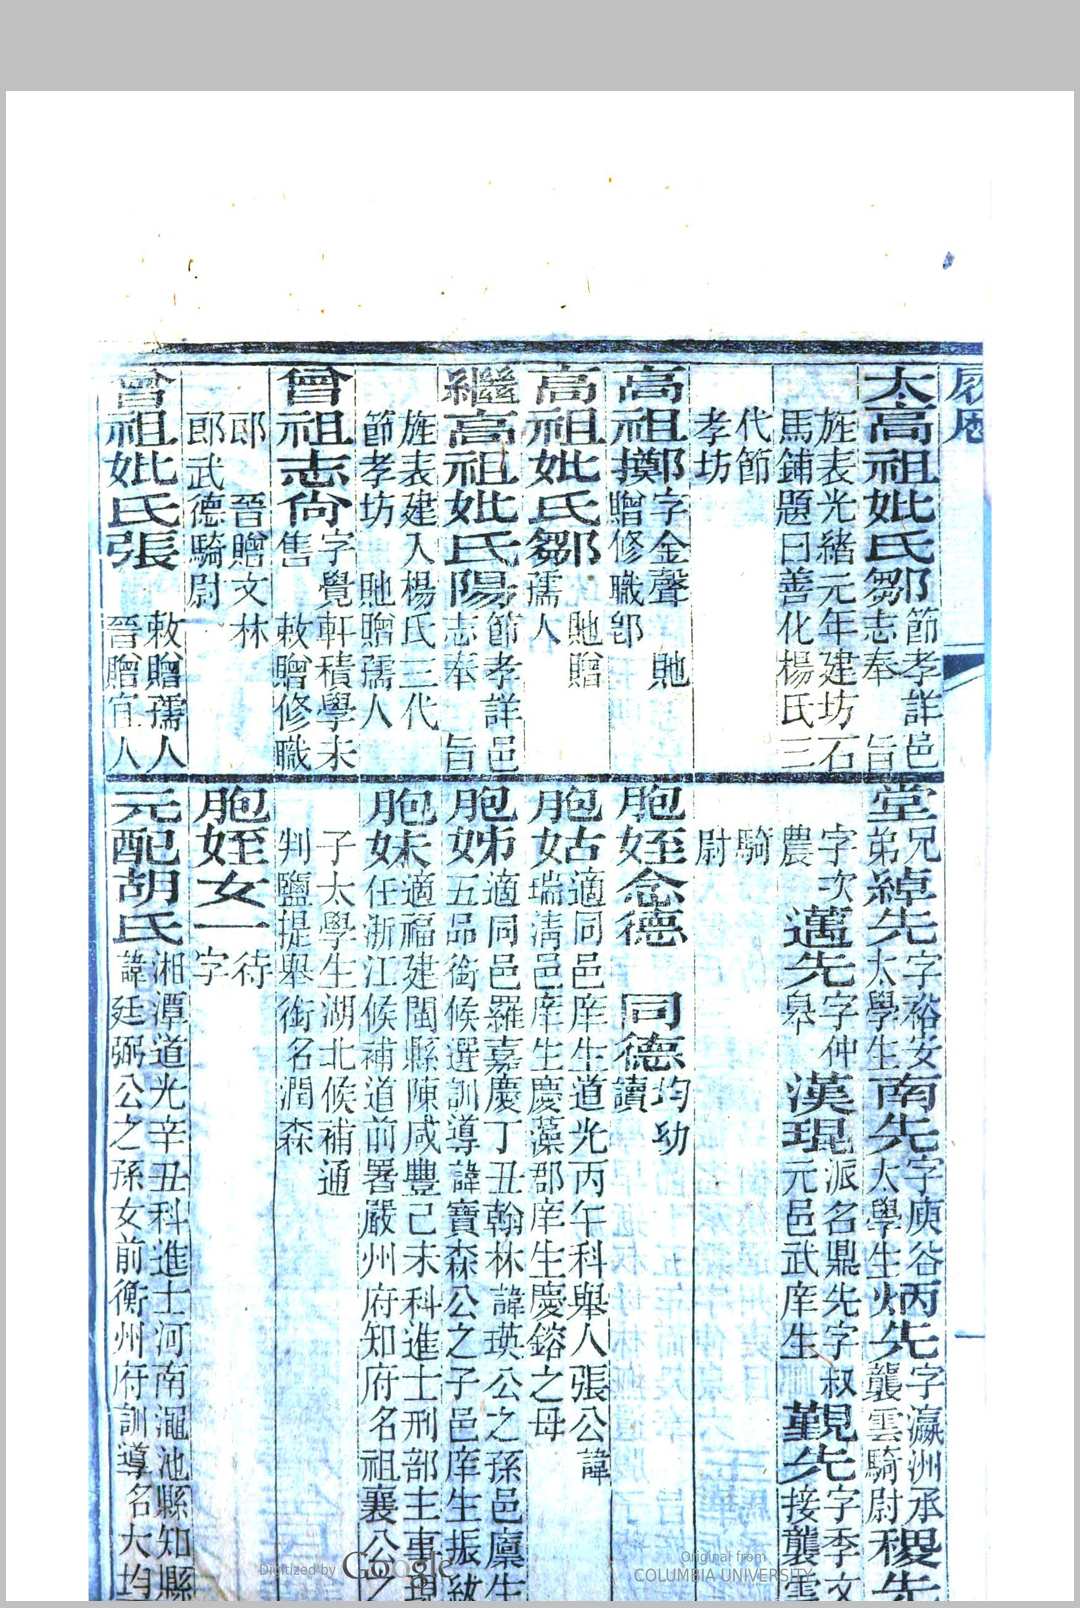 履歷
太高祖妣氏鄒節孝詳邑志奉 旨
旌表光緒元年建坊石馬鋪題曰善化楊氏三
代節孝坊
高祖擲字金聲 貤贈修職郎
高祖妣氏鄒 貤贈孺人
繼高祖妣氏陽節孝詳邑志奉 旨
旌表建入楊氏三代節孝坊 貤贈孺人
曾祖志尙字覺軒積學未售 敕贈修職
郎 晉贈文林郎武德騎尉
曾祖妣氏張 敕贈孺人晉贈宜人
堂兄弟綽先字裕安太學生南先字庾谷太學生炳先字瀛洲承襲雲騎尉稷先
字次農邁先字仲皋漢琨派名鼎先字叔元邑武庠生覲先字季文接襲雲
騎尉
胞姪念德 同德均幼讀
胞姑適同邑庠生道光丙午科舉人張公諱
女瑞清邑庠生慶藻郡庠生慶鎔之母
胞姊適同邑羅嘉慶丁丑翰林諱瑛公之孫邑廩生
五品銜候選訓導諱寶森公之子邑庠生振紱
胞妹適福建閩縣陳咸豐己未科進士刑部主事現
任浙江候補道前署嚴州府知府名祖襄公之
子太學生湖北候補通判鹽提舉銜名潤森
胞姪女一待字
元配胡氏湘潭道光辛丑科進士河南澠池縣知縣
諱廷弼公之孫女前衡州府訓導名大均
Digitized by Google
Original from
COLUMBIA UNIVERSITY